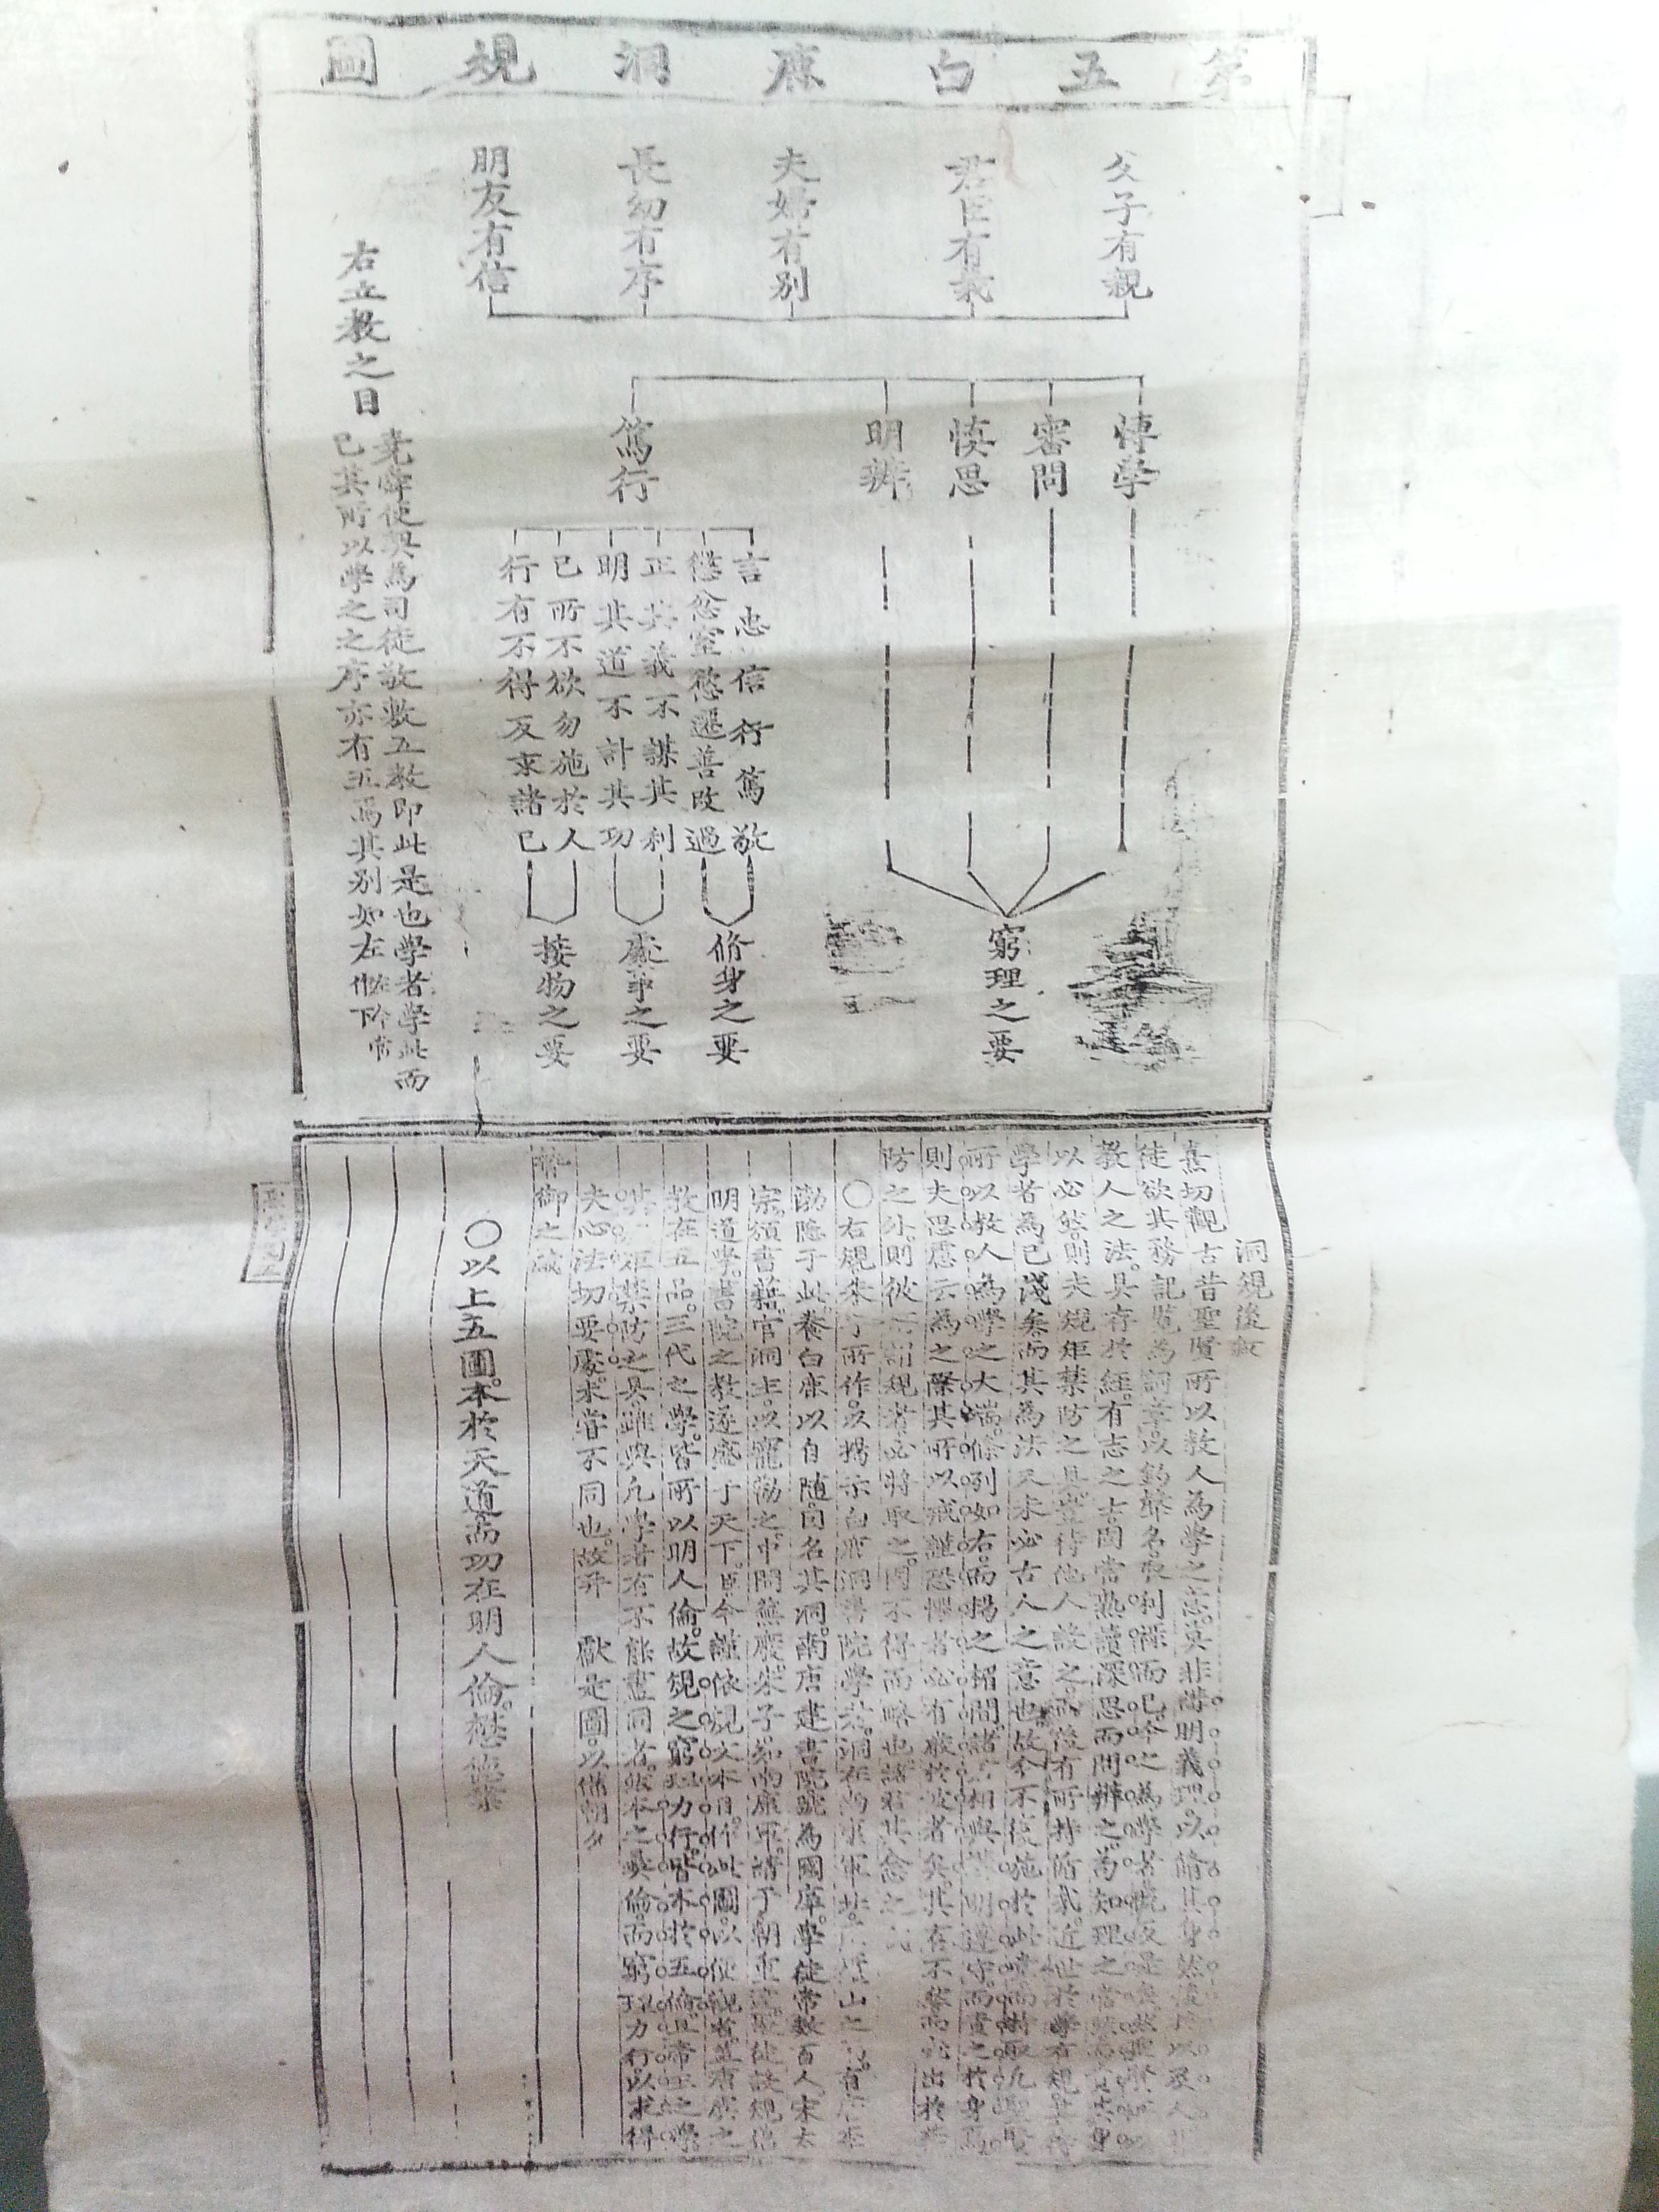 第五白鹿洞規圖
父子有親
君臣有義
夫婦有別
長幼有序
朋友有信
博學
審問
愼思
明辨
篤行
窮理之要
言忠信行篤敬
懲忿窒慾遷善改過
正其義不謀其利
明其道不計其功
己所不欲勿施於人
行有不得反求諸己
修身之要
處事之要
接物之要
右立教之目
堯舜使契為司徒敬敷五教即此是也學者學此而
已其所以學之之序亦有五焉其別如左
洞規後敘
熹切觀古昔聖賢所以教人為學之意莫非講明義理以脩其身然後推以及人非
徒欲其務記覽為詞章以釣聲名取利祿而已今之為學者旣反是矣然聖賢所以
教人之法具存於經有志之士固當熟讀深思而問辨之苟知理之當然而責其身
以必然則夫規矩禁防之具豈待他人設之而後有所持循哉近世於學有規其待
學者為已淺矣而其為法又未必古人之意也故今不復施於此堂而特取凡聖賢
所以教人為學之大端條列如右而揭之楣間諸君相與講明遵守而責之於身焉
則夫思慮云為之際其所以戒謹恐懼者必有嚴於彼者矣其有不然而或出於禁
防之外則彼所謂規者必將取之固不得而略也諸君其念之哉
○右規朱子所作以揭示白鹿洞書院學者洞在南康軍北匡廬山之南有唐李
渤隱于此養白鹿以自隨因名其洞南唐建書院號為國庠學徒常數百人宋太
宗頒書籍官洞主以寵勸之中間蕪廢朱子知南康軍請于朝重建聚徒設規倡
明道學書院之教遂盛于天下臣今謹依規文本目作此圖以便觀省蓋唐虞之
教在五品三代之學皆所以明人倫故規之窮理力行皆本於五倫且帝王之學
其規矩禁防之具雖與凡學者有不能盡同者然本之彝倫而窮理力行以求得
夫心法切要處未嘗不同也故并獻是圖以備朝夕
暬御之箴
○以上五圖本於天道而功在明人倫懋德業